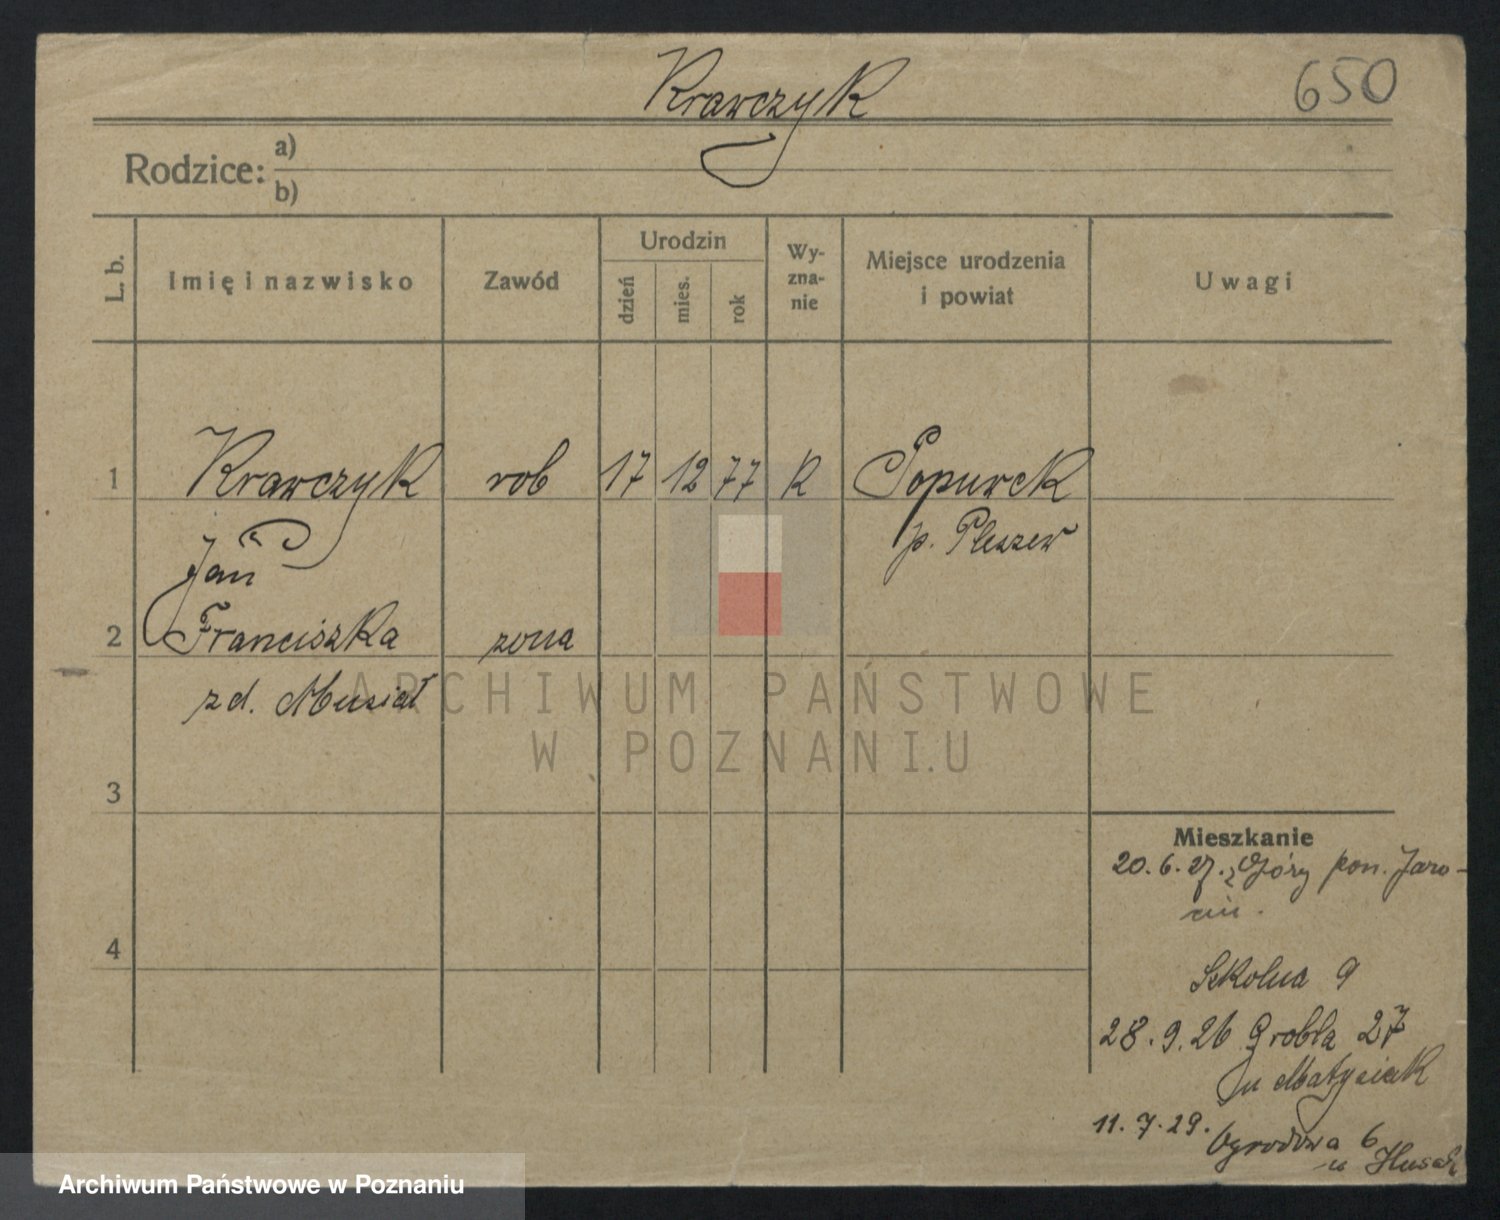 Krawczyk
650
Rodzice: a)
b)
L. b.
Imię i nazwisko
Zawód
Urodzin
dzień
mies.
rok
Wy-
zna-
nie
Miejsce urodzenia
i powiat
Uwagi
1 Krawczyk rob 17 12 77 K Popurek
p. Pleszew
Jan
2 Franciszka zona
zd. Musiał
ARCHIWUM PAŃSTWOWE
W POZNANIU
3
Mieszkanie
20. 6. 27. z Góry pow. Jaro-
cin.
4
Szkolna 9
28. 9. 26 Grobla 27
u Matysiak
11. 7. 29. Ogrodowa 6
u
Archiwum Państwowe w Poznaniu